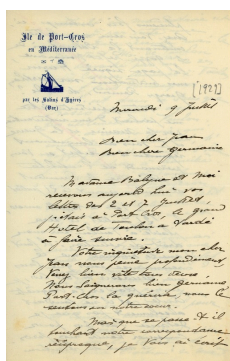 Ile de Port-Cros
en Méditerranée
par les Salins d'Hyères
(Var)
[1929]
9 Juillet
Bien cher Jean
Bien chère Germaine
Madame Balyne et moi
recevons aujourd'hui vos
lettres des 2 et 7 Juillet
j'étais à Port-Cros, le Grand
Hotel de Toulon a tardé
à faire suivre.
Votre inquiétude mon cher
Jean nous peine profondément,
Venez bien vite tous deux.
Nous soignerons bien Germaine
Port-Cros la guérira, nous le
sentons
Mais que se passe-t-il
touchant votre correspondance
réciproque, je vous ai écrit